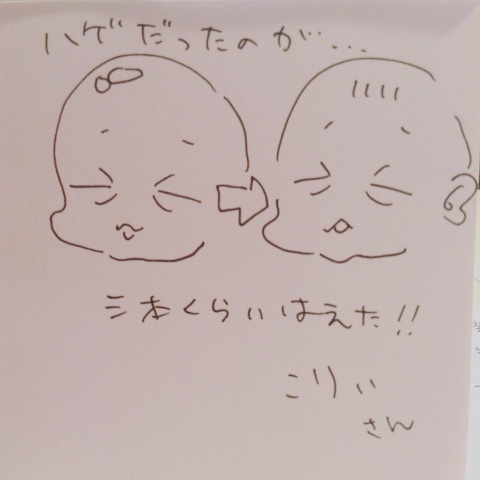 ハゲだったのが…
三本くらいはえた!!
こりぃ
さん